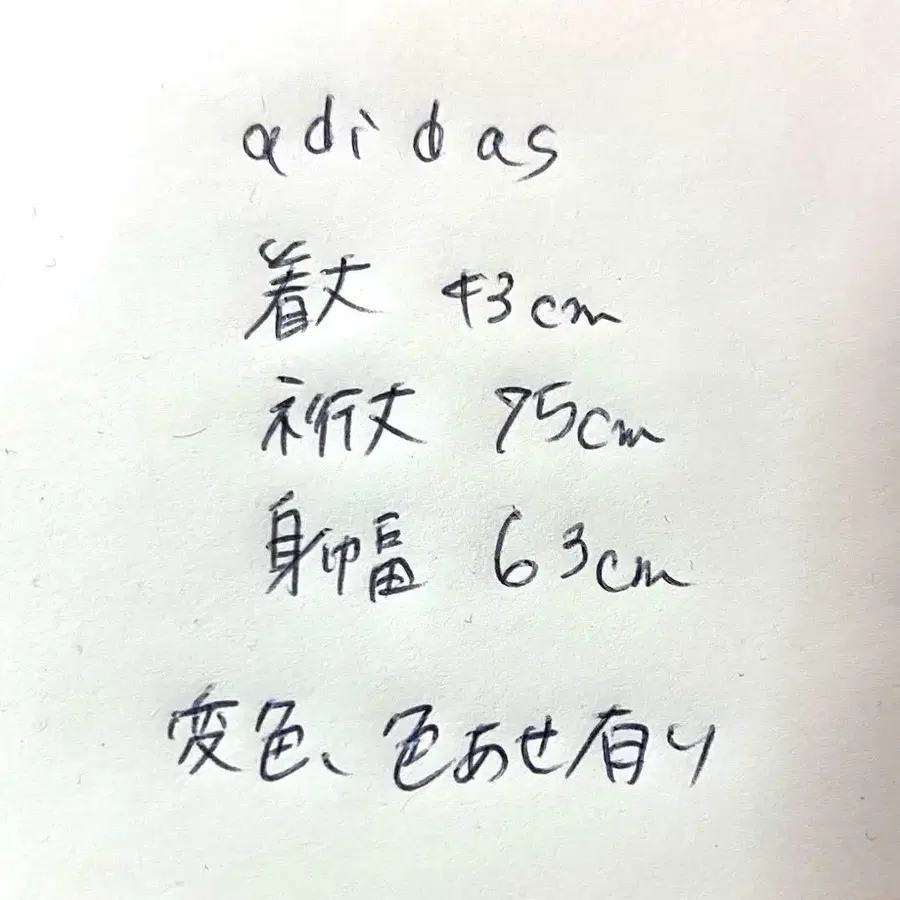 adidas
着丈 43cm
裄丈 75cm
身幅 63cm
変色、色あせ有り